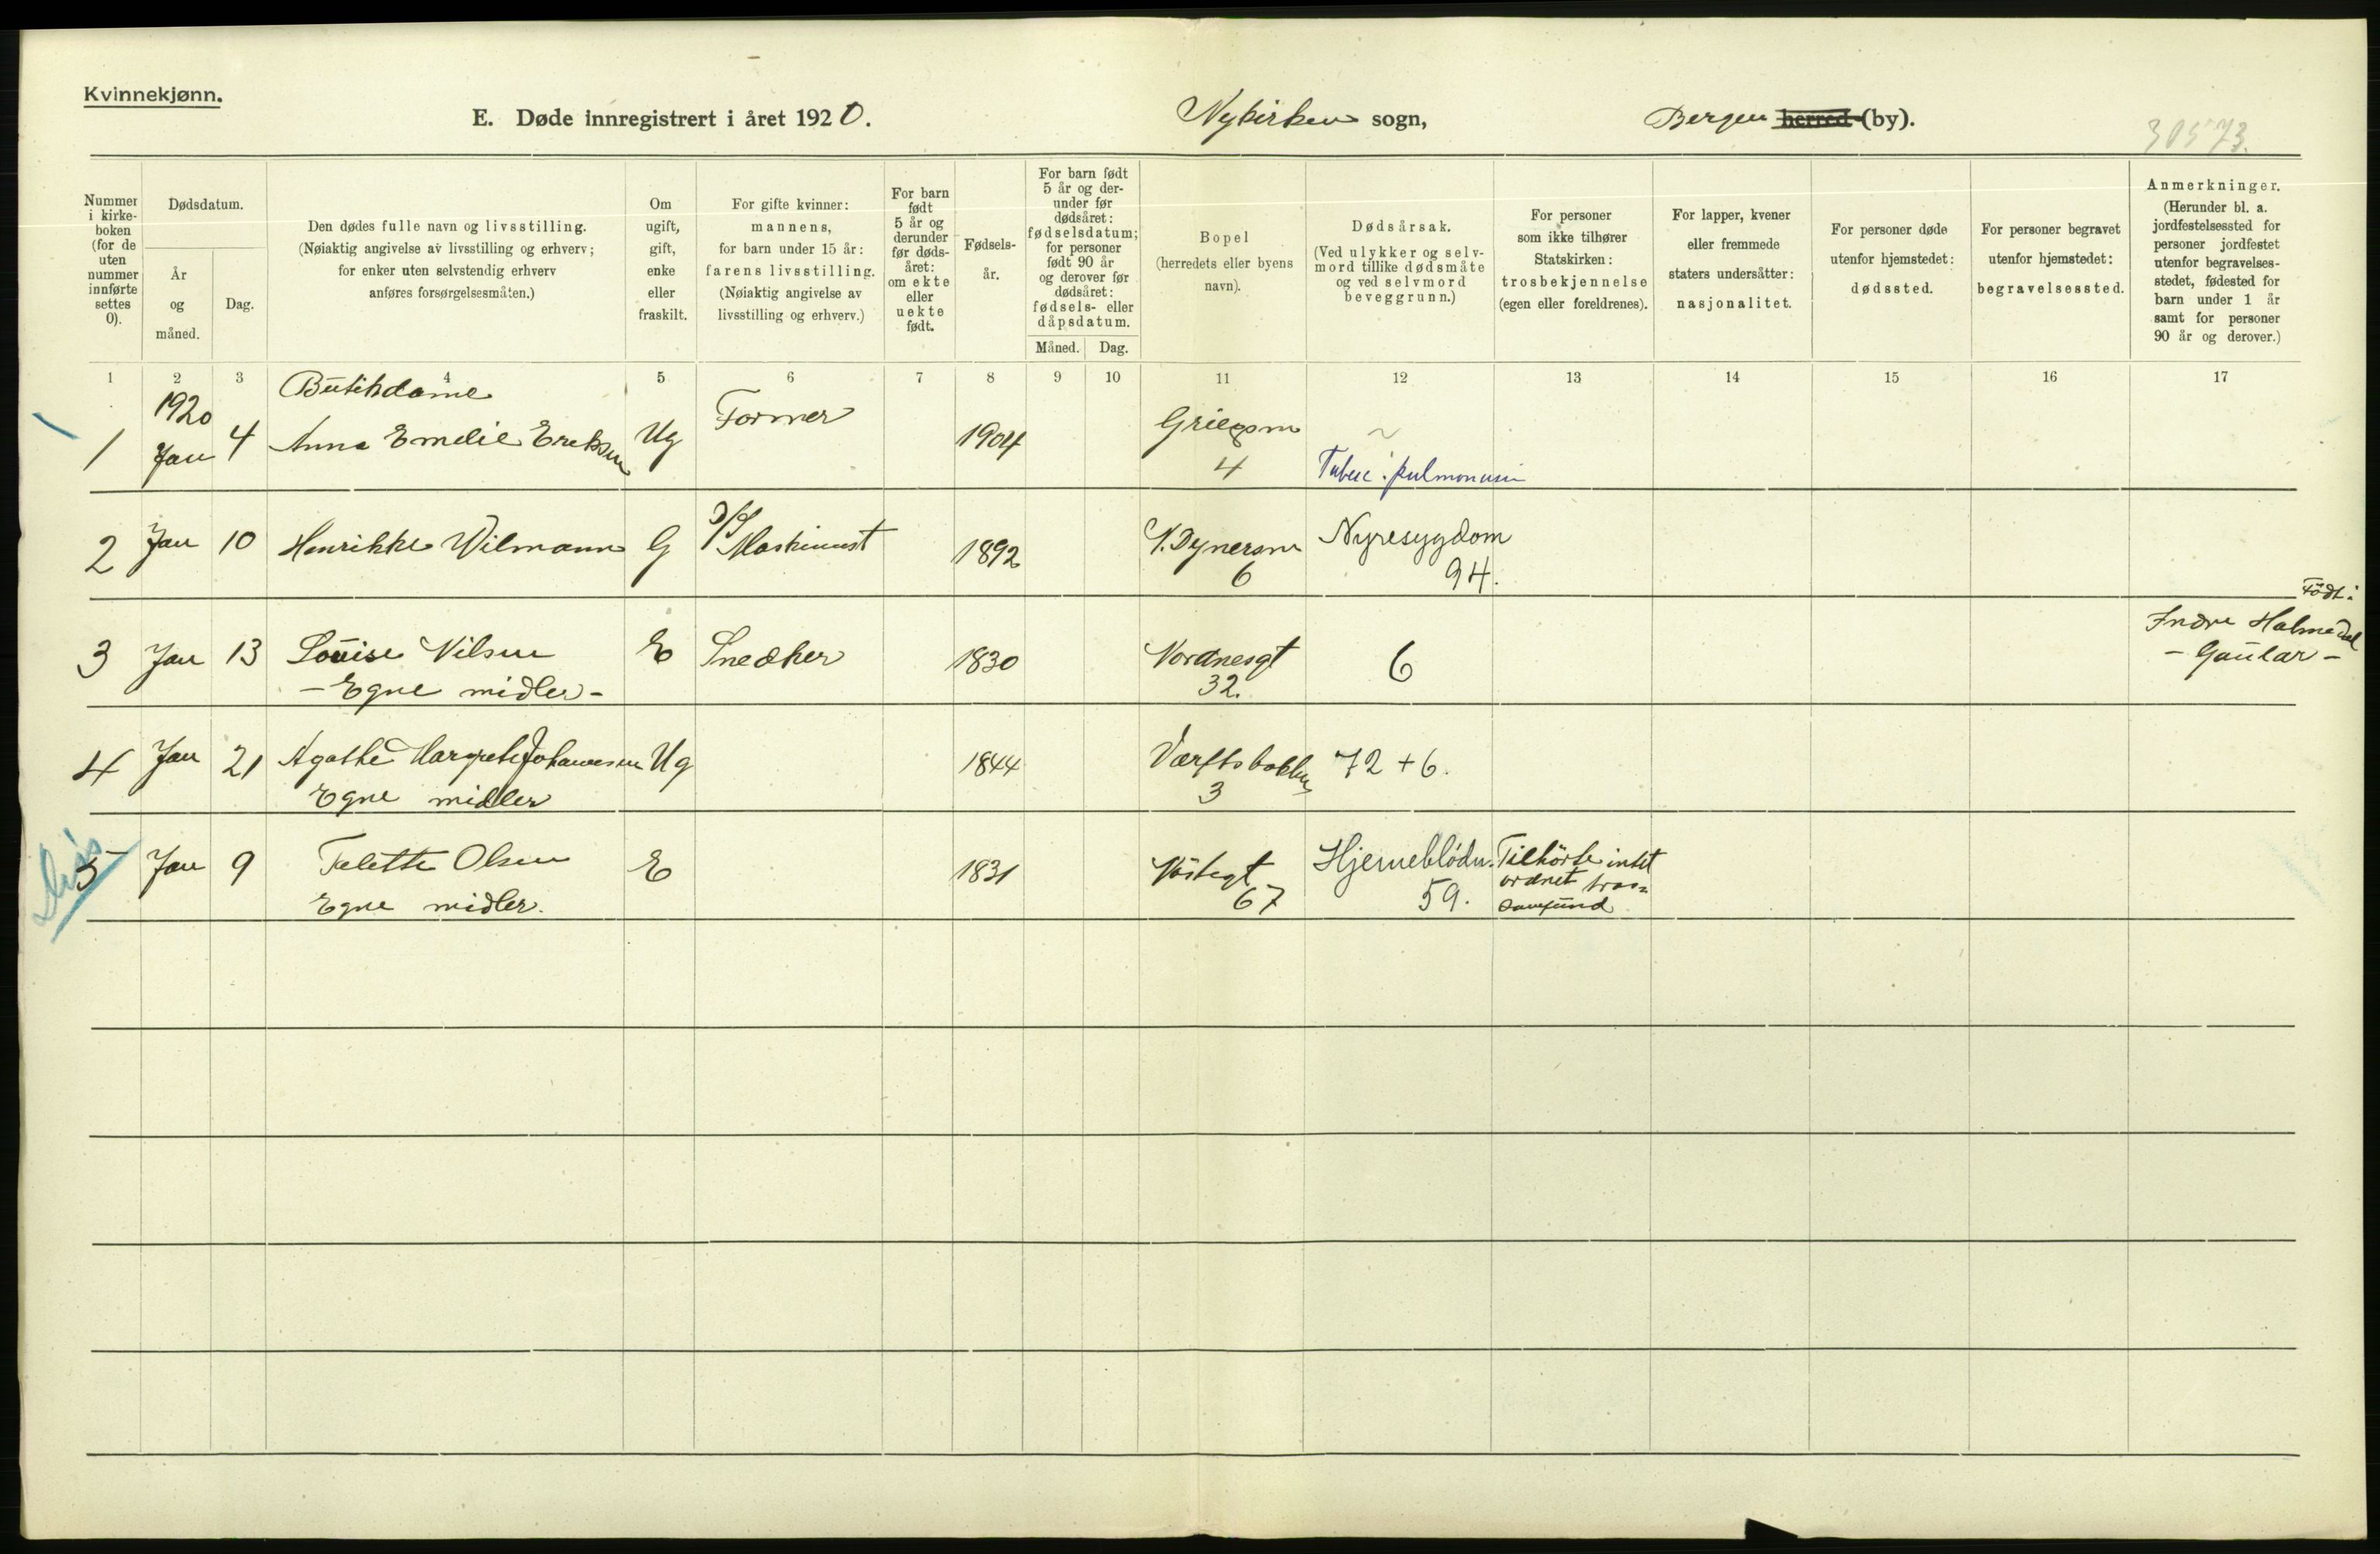 Kvinnekjønn.
E. Døde innregistrert i året 1920. Nykirken sogn, Bergen herred (by).
30573.
Nummer i kirkeboken (for de uten nummer innførte settes 0).
Dødsdatum.
År og måned.
Dag.
Den dødes fulle navn og livsstilling.
(Nøiaktig angivelse av livsstilling og erhverv;
for enker uten selvstendig erhverv
anføres forsørgelsesmåten.)
Om ugift, gift, enke eller fraskilt.
For gifte kvinner:
mannens,
for barn under 15 år:
farens livsstilling.
(Nøiaktig angivelse av
livsstilling og erhverv.)
For barn født 5 år og derunder før dødsåret: om ekte eller uekte født.
Fødselsår.
For barn født 5 år og derunder før dødsåret: fødselsdatum; for personer født 90 år og derover før dødsåret: fødsels- eller dåpsdatum.
Måned. Dag.
Bopel
(herredets eller byens
navn).
Dødsårsak.
(Ved ulykker og selvmord tillike dødsmåte og ved selvmord beveggrunn.)
For personer
som ikke tilhører
Statskirken:
trosbekjennelse
(egen eller foreldrenes).
For lapper, kvener
eller fremmede
staters undersåtter:
nasjonalitet.
For personer døde
utenfor hjemstedet:
dødssted.
For personer begravet
utenfor hjemstedet:
begravelsessted.
Anmerkninger.
(Herunder bl. a.
jordfestelsessted for
personer jordfestet
utenfor begravelsesstedet, fødested for
barn under 1 år
samt for personer
90 år og derover.)
1 2 3 4 5 6 7 8 9 10 11 12 13 14 15 16 17
1 1920 Jan 4 Butikdame Anna Emelie Eriksen Ug Former 1904 Griegsm 4 Tuberc. pulmonum
2 Jan 10 Henrikke Wilmann G D/S Maskinist 1892 6 Nyresygdom 94.
3 Jan 13 Louise Nilsen E Snedker 1830 Nordnesgt 32. 6 Født: Indre Holmedal - Gaular -
- Egne midler -
4 Jan 21 Agathe Margrete Johannesen Ug 1844 Værftsbakken 3 72 + 6.
Egne midler
5 Jan 9 Talette Olsen E 1831 67 Hjerneblödn. 59. Tilhörte intet ordnet tros= samfund
Egne midler.